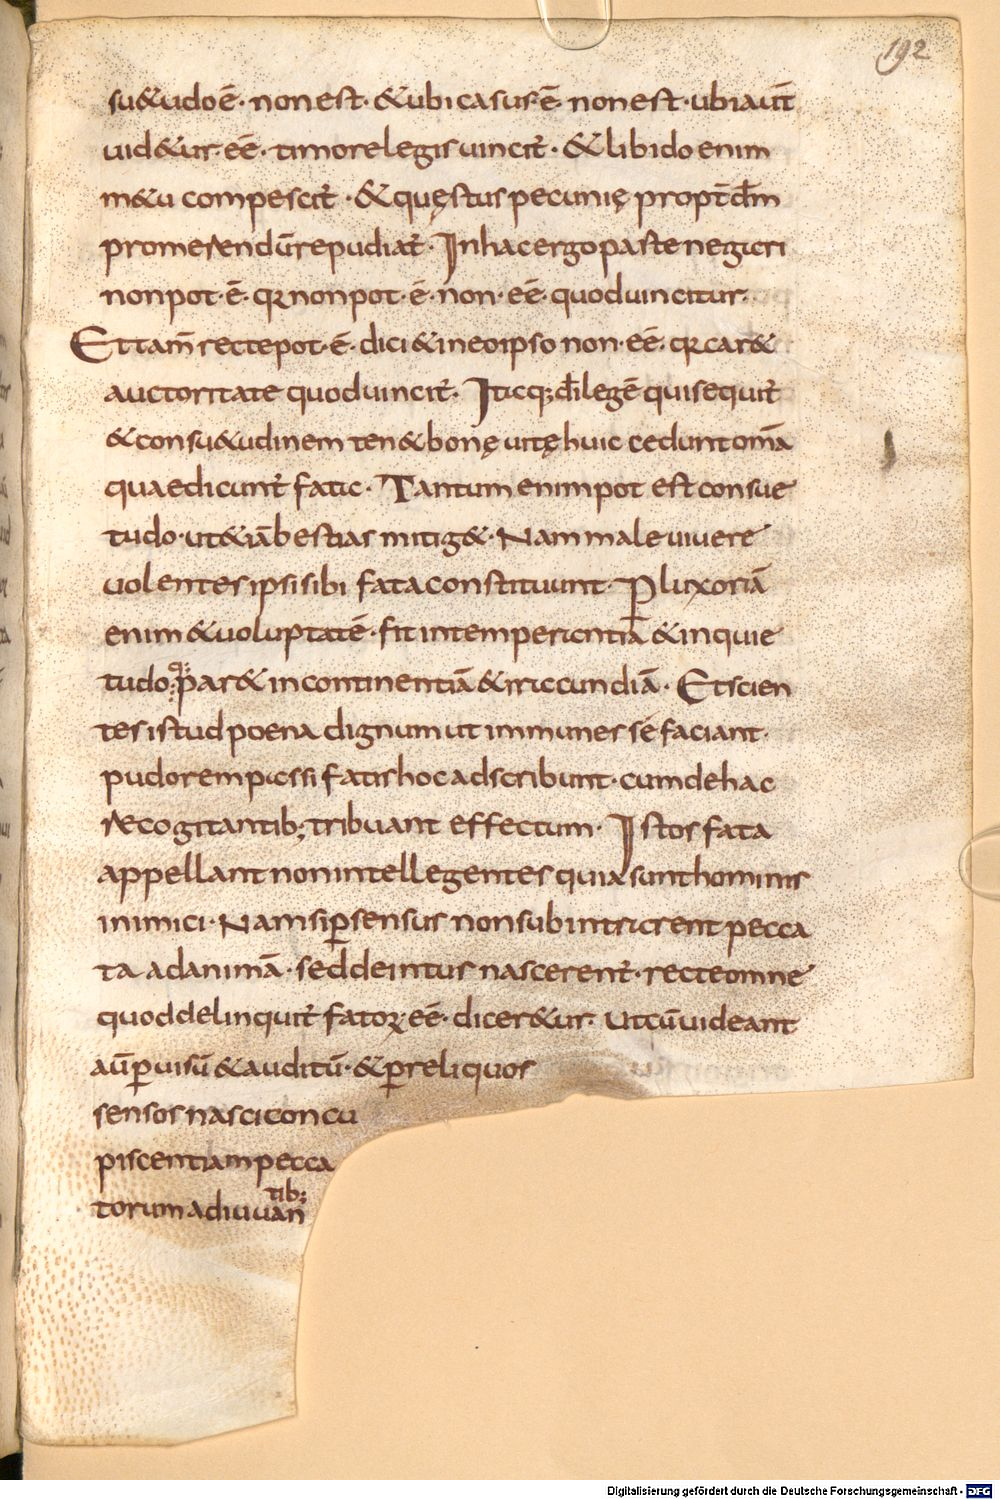 192
su&udo ē· non est· & ubi casus·ē· non est· ubi aūt
uid&ur· eē· timore legis uincit̄· & libido enim
m&u compescit̄· & quęstus pecunię propt̄ dm̄
promerendū repudiat̄· In hac ergo parte negari
non pot·ē· qa non pot·ē· non·eē· quod uincitur·
Et tam̄ recte pot·ē· dici & in eo ipso non·eē· qa car&
auctoritate quod uincit̄· Itaq; dī legē qui sequit̄
& consu&udinem ten& bonę uitę huic cedunt om̄a
quae dicunt̄ fata· Tantum enim pot est consue
tudo· ut & iā bestias mitig&· Nam male uiuere
uolentes ipsi sibi fata constituunt· P̱ luxoriā
enim & uoluptatē· fit intemperantiā & inquie
tudo· qꝫ par& incontinentiā & iracundiā· Et scien
tes istud poena dignum ut immunes se faciant·
pudorem passi fatis hoc adscribunt· cum de hac
re cogitantib; tribuant effectum· Istos fata
appellant non intellegentes quia sunt hominis
inimici· Nam si ꝑ sensus non subintrarent pecca
ta ad animā· sed de intus nascerent̄· recte omne
quod delinquit̄ fatoꝝ·eē· dicer&ur· Ut cū uideant
aū ꝑ uisū & auditū· & ꝑ reliquos
sensos nasci concu
piscentiam pecca
torum adiuuantib;
Digitalisierung gefördert durch die Deutsche Forschungsgemeinschaft - DFG